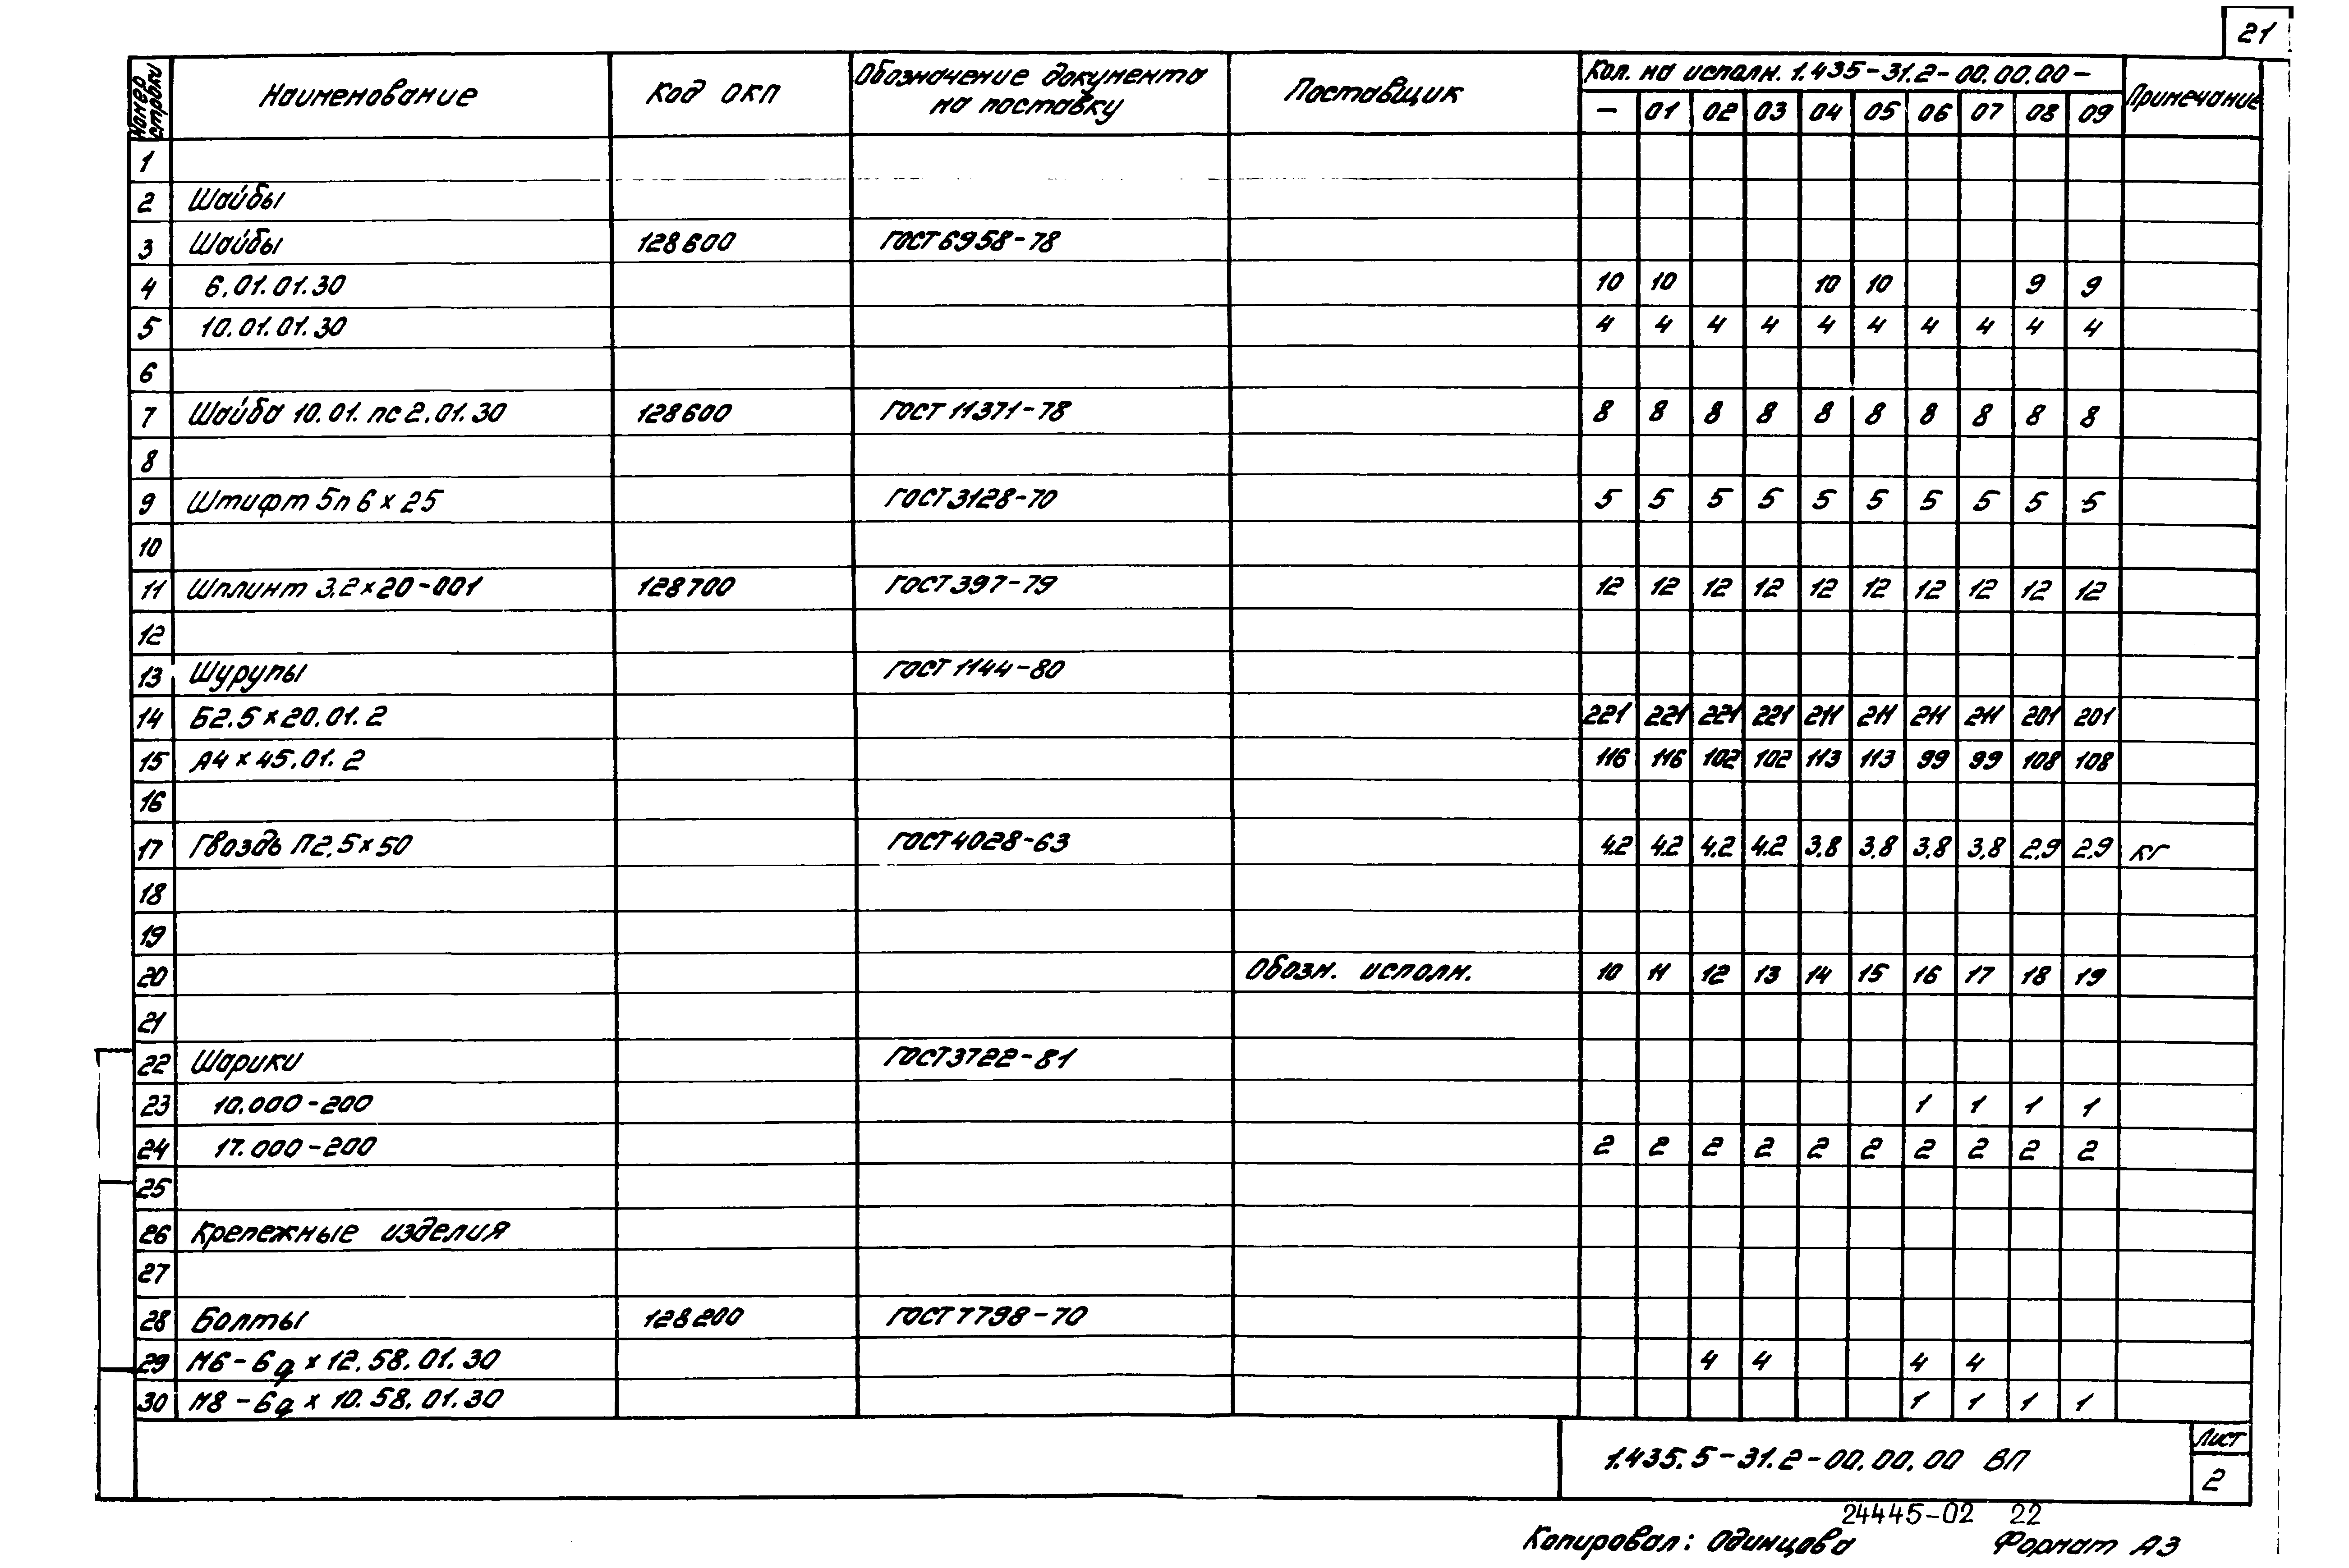 21
Номер строки Наименование Код ОКП Обозначение документа на поставку Поставщик Кол. на исполн. 1.435-31.2-00.00.00- Примечание
— 01 02 03 04 05 06 07 08 09
1
2 Шайбы
3 Шайбы 128600 ГОСТ 6958-78
4 6.01.01.30 10 10 10 10 9 9
5 10.01.01.30 4 4 4 4 4 4 4 4 4 4
6
7 Шайба 10.01.пс2.01.30 128600 ГОСТ 11371-78 8 8 8 8 8 8 8 8 8 8
8
9 Штифт 5п6×25 ГОСТ 3128-70 5 5 5 5 5 5 5 5 5 5
10
11 Шплинт 3.2×20-001 128700 ГОСТ 397-79 12 12 12 12 12 12 12 12 12 12
12
13 Шурупы ГОСТ 1144-80
14 Б2.5×20.01.2 221 221 221 221 211 211 211 211 201 201
15 А4×45.01.2 116 116 102 102 113 113 99 99 108 108
16
17 Гвоздь П2,5×50 ГОСТ 4028-63 4.2 4.2 4.2 4.2 3,8 3,8 3,8 3,8 2,9 2,9 кг
18
19
20 Обозн. исполн. 10 11 12 13 14 15 16 17 18 19
21
22 Шарики ГОСТ 3722-81
23 10.000-200 1 1 1 1
24 17.000-200 2 2 2 2 2 2 2 2 2 2
25
26 Крепежные изделия
27
28 Болты 128200 ГОСТ 7798-70
29 М6-6g×12.58.01.30 4 4 4 4
30 М8-6g×10.58.01.30 1 1 1 1
1.435.5-31.2-00.00.00 ВП Лист
2
24445-02 22
Копировал: Одинцова Формат А3